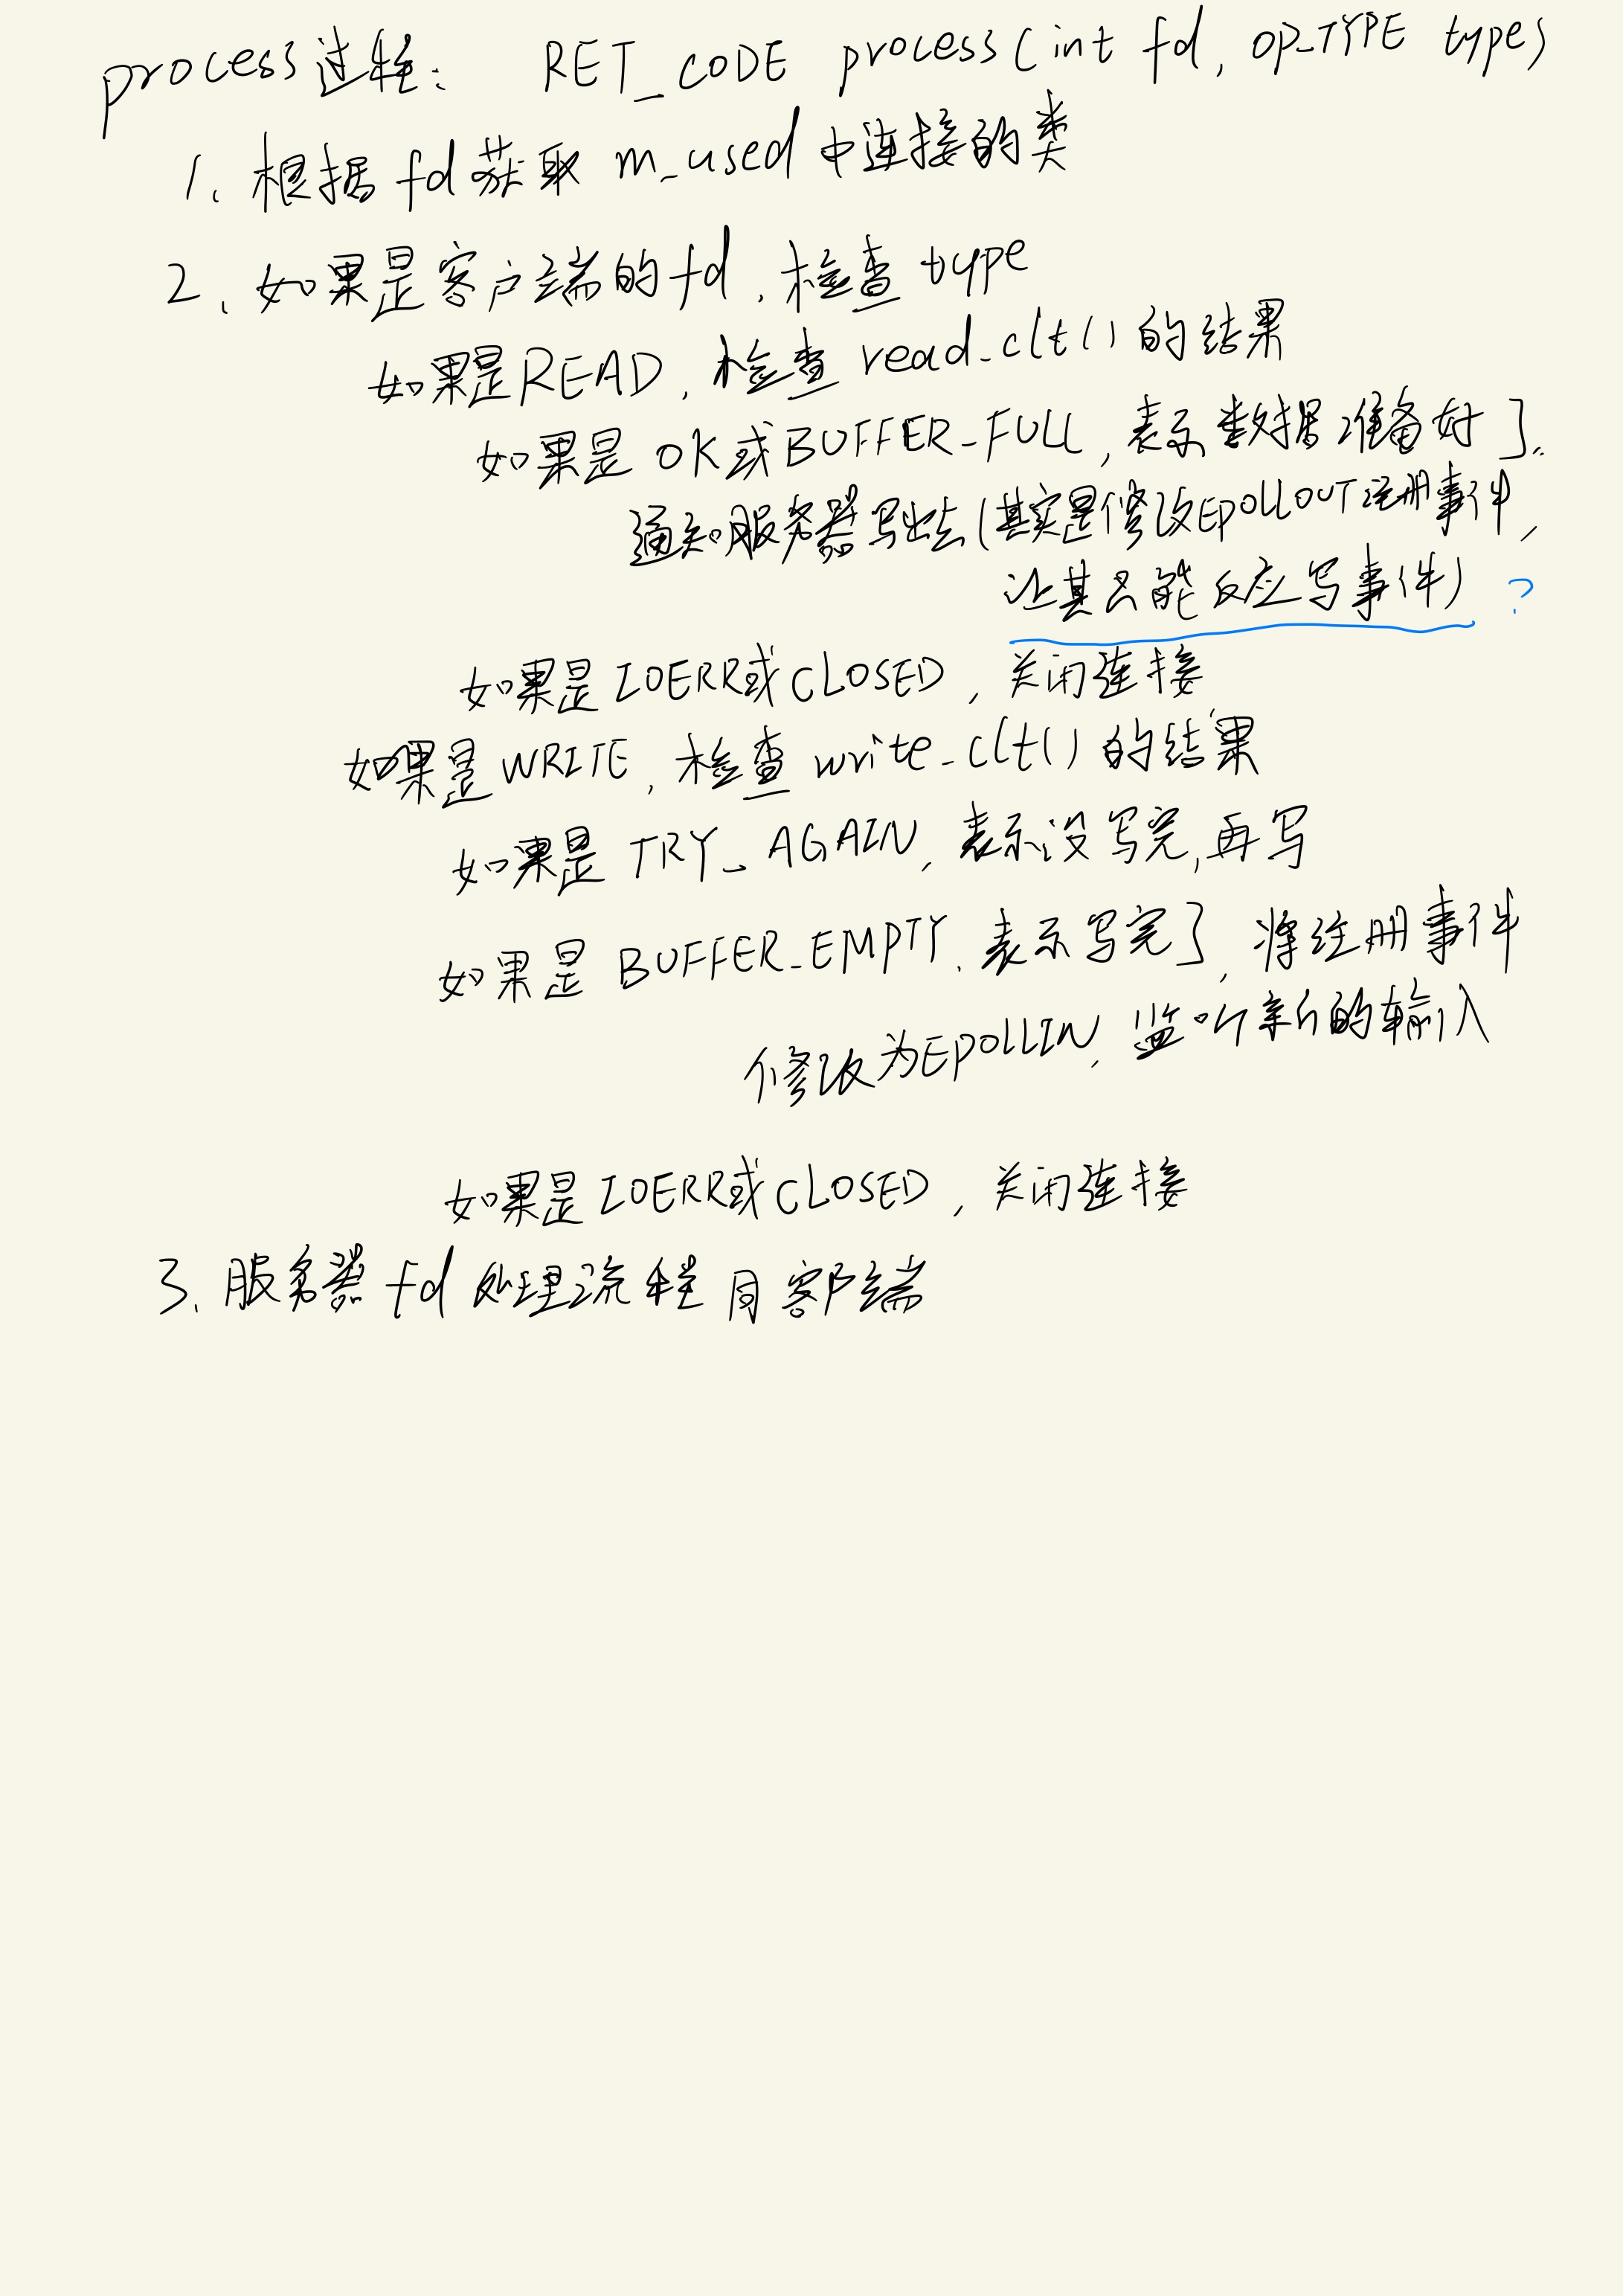 process过程: RET_CODE process(int fd, OP_TYPE type)
1、根据 fd 获取 m_used 中连接的类
2、如果是客户端的fd,检查 type
如果是READ,检查 read_clt()的结果
如果是 OK或BUFFER_FULL,表示数据准备好了.
通知服务器写出去(其实是修改EPOLLOUT注册事件,
让其只能反应写事件) ?
如果是IOERR或CLOSED,关闭连接
如果是WRITE,检查 write_clt()的结果
如果是 TRY_AGAIN,表示没写完,再写
如果是 BUFFER_EMPTY.表示写完了,将注册事件
修改为EPOLLIN,监听新的输入
如果是IOERR或CLOSED,关闭连接
3、服务器 fd 处理流程同客户端